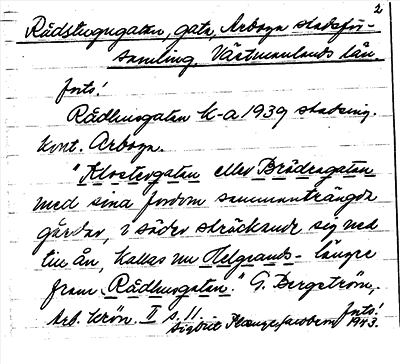 2
Rådstugugatan, gata, Arboga stadsför-
samling, Västmanlands län.
forts!
Rådhusgatan K-a 1939 stadsing.
kont. Arboga.
"Klostergatan eller Brödragatan
med sina fordom sammanträngda
gårdar, i söder sträckande sig ned
till ån, kallas nu Helgeands- längre
fram Rådhusgatan." G. Bergström,
Arb. krön. II s. 11. forts!
Sigbrit Plænge Jacobson 1943.